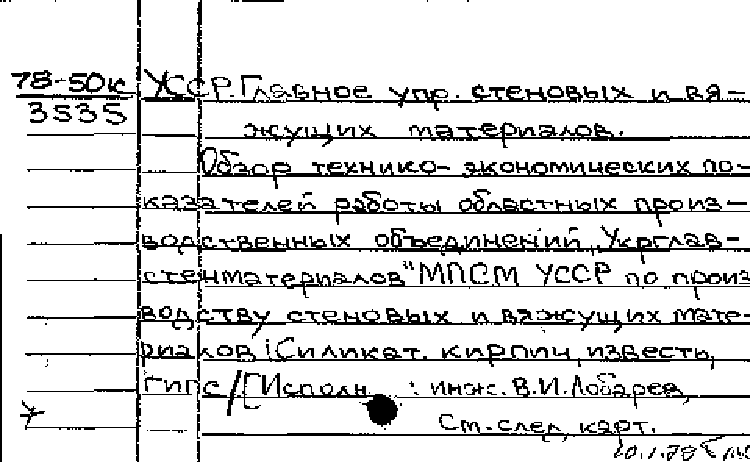 78-50к УССР. Главное упр. стеновых и вя-
3535
жущих материалов.
Обзор технико-экономических по-
казателей работы областных произ-
водственных объединений „Укрглав-
стенматериалов" МПСМ УССР по произ
водству стеновых и вяжущих мате-
риалов: Силикат. кирпич, известь,
гипс/[Исполн : инж. В.И. Лобарев,
См. след. карт.